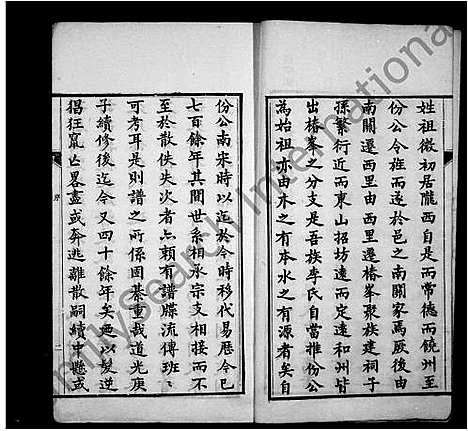 姓祖微初居隴西自是而常德而饒州至
份公令旌而遂於邑之南關家焉厥後由
南關遷西里由西里遷椿峯聚族建祠子
孫繁衍近而東山招坊遠而定遠和州皆
出椿峯之分支是吾族李氏自當推份公
為始祖亦由木之有本水之有源者矣自
份公南宋時以迄於今時移代易歷今已
七百餘年其間世系相承宗支相接而不
至於散佚失次者亦賴有譜牒流傳班班
可考耳是則譜之所係固綦重哉道光庚
子續修後迄今又四十餘年矣無以髮逆
猖狂竄亡畧盡或奔逃離散嗣續中懸或
序
FamilySearch International